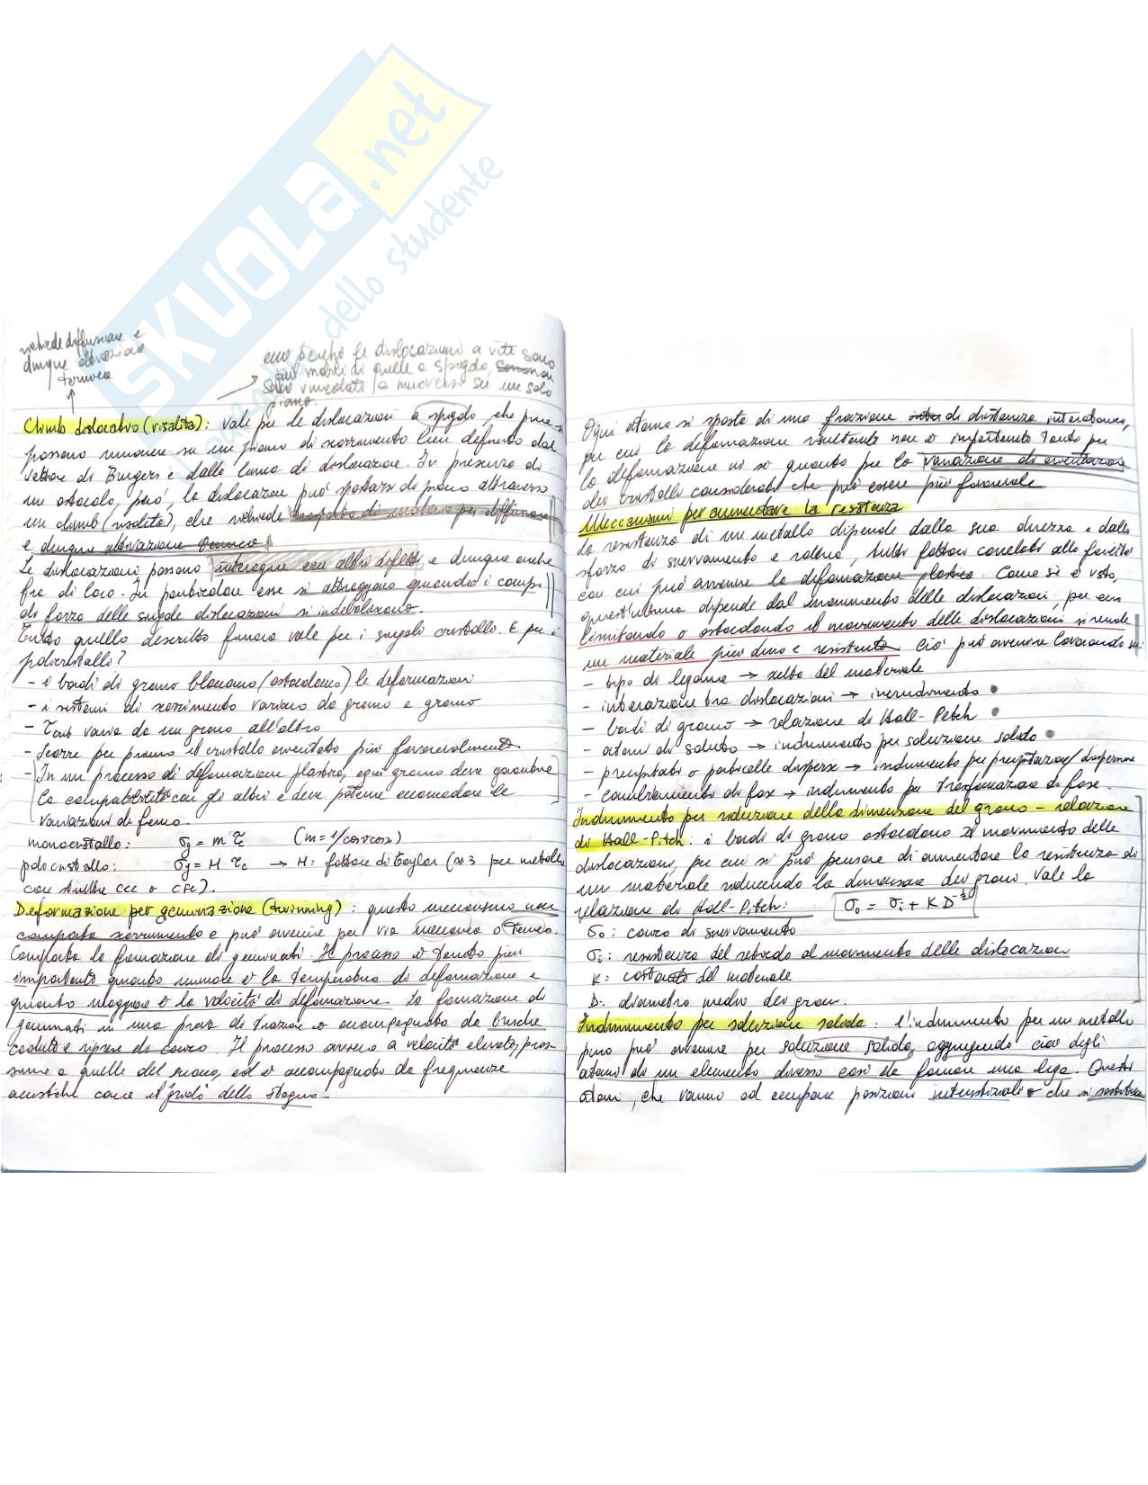 SKUOLA.net
dello studente
richiede diffusione e
dunque attivazione
termica
ecco perché le dislocazioni a vite sono
più mobili di quelle a spigolo,
sono vincolate a muoversi su un solo
piano.
Climb dislocativo (risalita): vale per le dislocazioni a spigolo, che pure
possono muoversi su un piano di scorrimento ben definito dal
vettore di Burgers e dalla linea di dislocazione. In presenza di
un ostacolo, però, la dislocazione può spostarsi di piano attraverso
un climb (risalita), che richiede trasporto di materia per diffusione
e dunque attivazione termica.
Le dislocazioni possono interagire con altri difetti, e dunque anche
fra di loro. In particolare esse si attraggono quando i campi
di forza delle singole dislocazioni si indeboliscono.
Tutto quello descritto finora vale per i singoli cristalli. E per i
policristalli?
- i bordi di grano bloccano (ostacolano) le deformazioni
- i sistemi di scorrimento variano da grano a grano
- τcris varia da un grano all'altro
- Scorre per primo il cristallo orientato più favorevolmente
- In un processo di deformazione plastica, ogni grano deve garantire
la compatibilità con gli altri e deve poterne accomodare le
variazioni di forma.
monocristallo: σy = m τc (m = 1/cosφcosλ)
policristallo: σy = M τc → M: fattore di Taylor (≈3 per metalli
con strutture ccc o cfc).
Deformazione per geminazione (twinning): questo meccanismo non
comporta scorrimento e può avvenire per via meccanica o termica.
Comporta la formazione di geminati. Il processo è tanto più
importante quanto minore è la temperatura di deformazione e
quanto maggiore è la velocità di deformazione. La formazione di
geminati in una prova di trazione è accompagnata da brusche
cadute e riprese di carico. Il processo avviene a velocità elevate, pros-
sime a quelle del suono, ed è accompagnato da frequenze
acustiche come il "grido dello stagno".
Ogni atomo si sposta di una frazione di distanza interatomica,
per cui la deformazione risultante non è importante tanto per
la deformazione in sé quanto per la variazione di orientazione
dei cristalli considerati che può essere più favorevole
Meccanismi per aumentare la resistenza
La resistenza di un metallo dipende dalla sua durezza e dallo
sforzo di snervamento e rottura, tutti fattori correlati alla facilità
con cui può avvenire la deformazione plastica. Come si è visto,
quest'ultima dipende dal movimento delle dislocazioni, per cui
limitando o ostacolando il movimento delle dislocazioni si rende
un materiale più duro e resistente. Ciò può avvenire lavorando su:
- tipo di legame → scelta del materiale
- interazione tra dislocazioni → incrudimento
- bordi di grano → relazione di Hall-Petch
- atomi di soluto → indurimento per soluzione solida
- precipitati o particelle disperse → indurimento per precipitazione/dispersione
- cambiamento di fase → indurimento per trasformazione di fase.
Indurimento per riduzione della dimensione del grano - relazione
di Hall-Pitch: i bordi di grano ostacolano il movimento delle
dislocazioni, per cui si può pensare di aumentare la resistenza di
un materiale riducendo la dimensione dei grani. Vale la
relazione di Hall-Pitch: σo = σi + K D^-1/2
σo: carico di snervamento
σi: resistenza del reticolo al movimento delle dislocazioni
K: costante del materiale
D: diametro medio dei grani.
Indurimento per soluzione solida: l'indurimento per un metallo
puro può avvenire per soluzione solida, aggiungendo cioè degli
atomi di un elemento diverso così da formare una lega. Questi
atomi, che vanno ad occupare posizioni interstiziali o che si sostituis